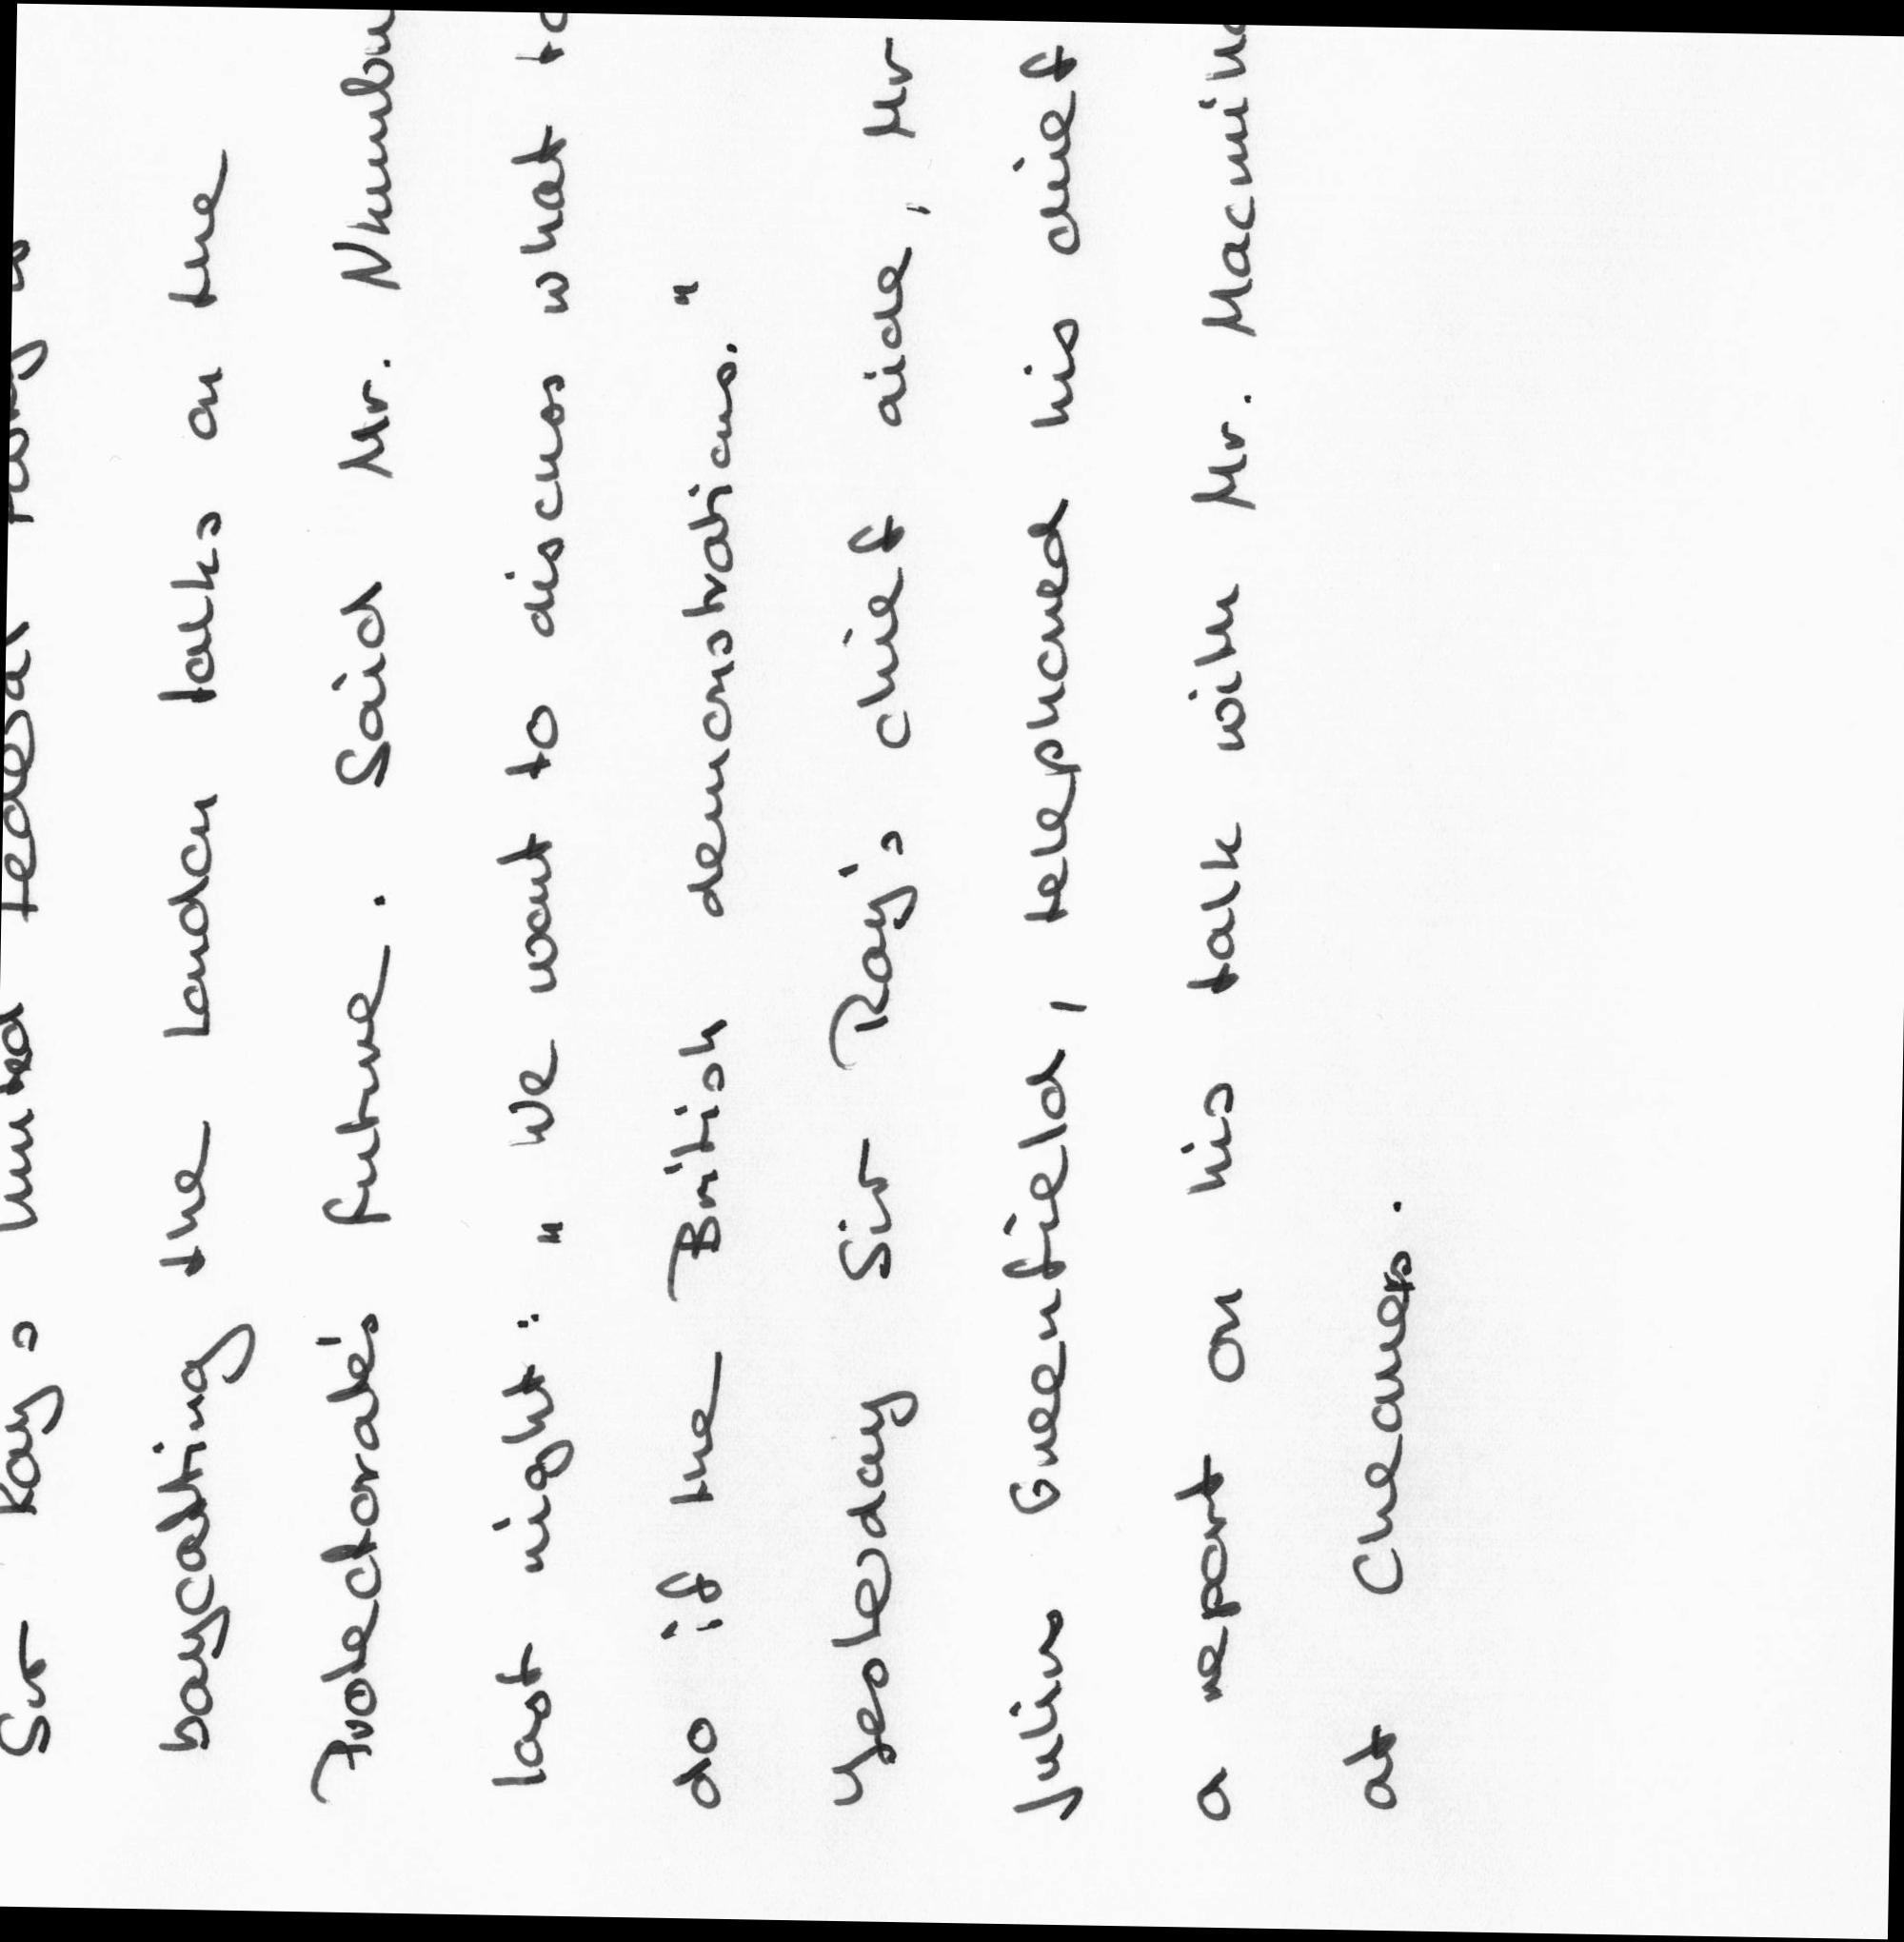 Sir Roy's United Federal Party is
boycotting the London talks on the
Protectorate's future. Said Mr. Nkumbu
last night: "We want to discuss what to
do if the British demonstrations."
Yesterday Sir Roy's chief aide, Mr
Julius Greenfield, telephoned his chief
a report on his talk with Mr. Macmill
at Chequers.